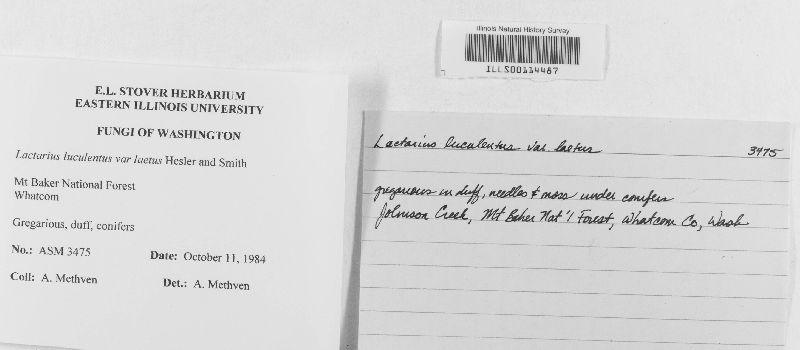 Illinois Natural History Survey
ILLS00114467
E.L. STOVER HERBARIUM
EASTERN ILLINOIS UNIVERSITY
FUNGI OF WASHINGTON
Lactarius luculentus var laetus Hesler and Smith
Mt Baker National Forest
Whatcom
Gregarious, duff, conifers
No.: ASM 3475 Date: October 11, 1984
Coll: A. Methven Det.: A. Methven
Lactarius luculentus var. laetus 3475
gregarious in duff, needles & moss under conifers
Johnson Creek, Mt Baker Nat'l Forest, Whatcom Co, Wash